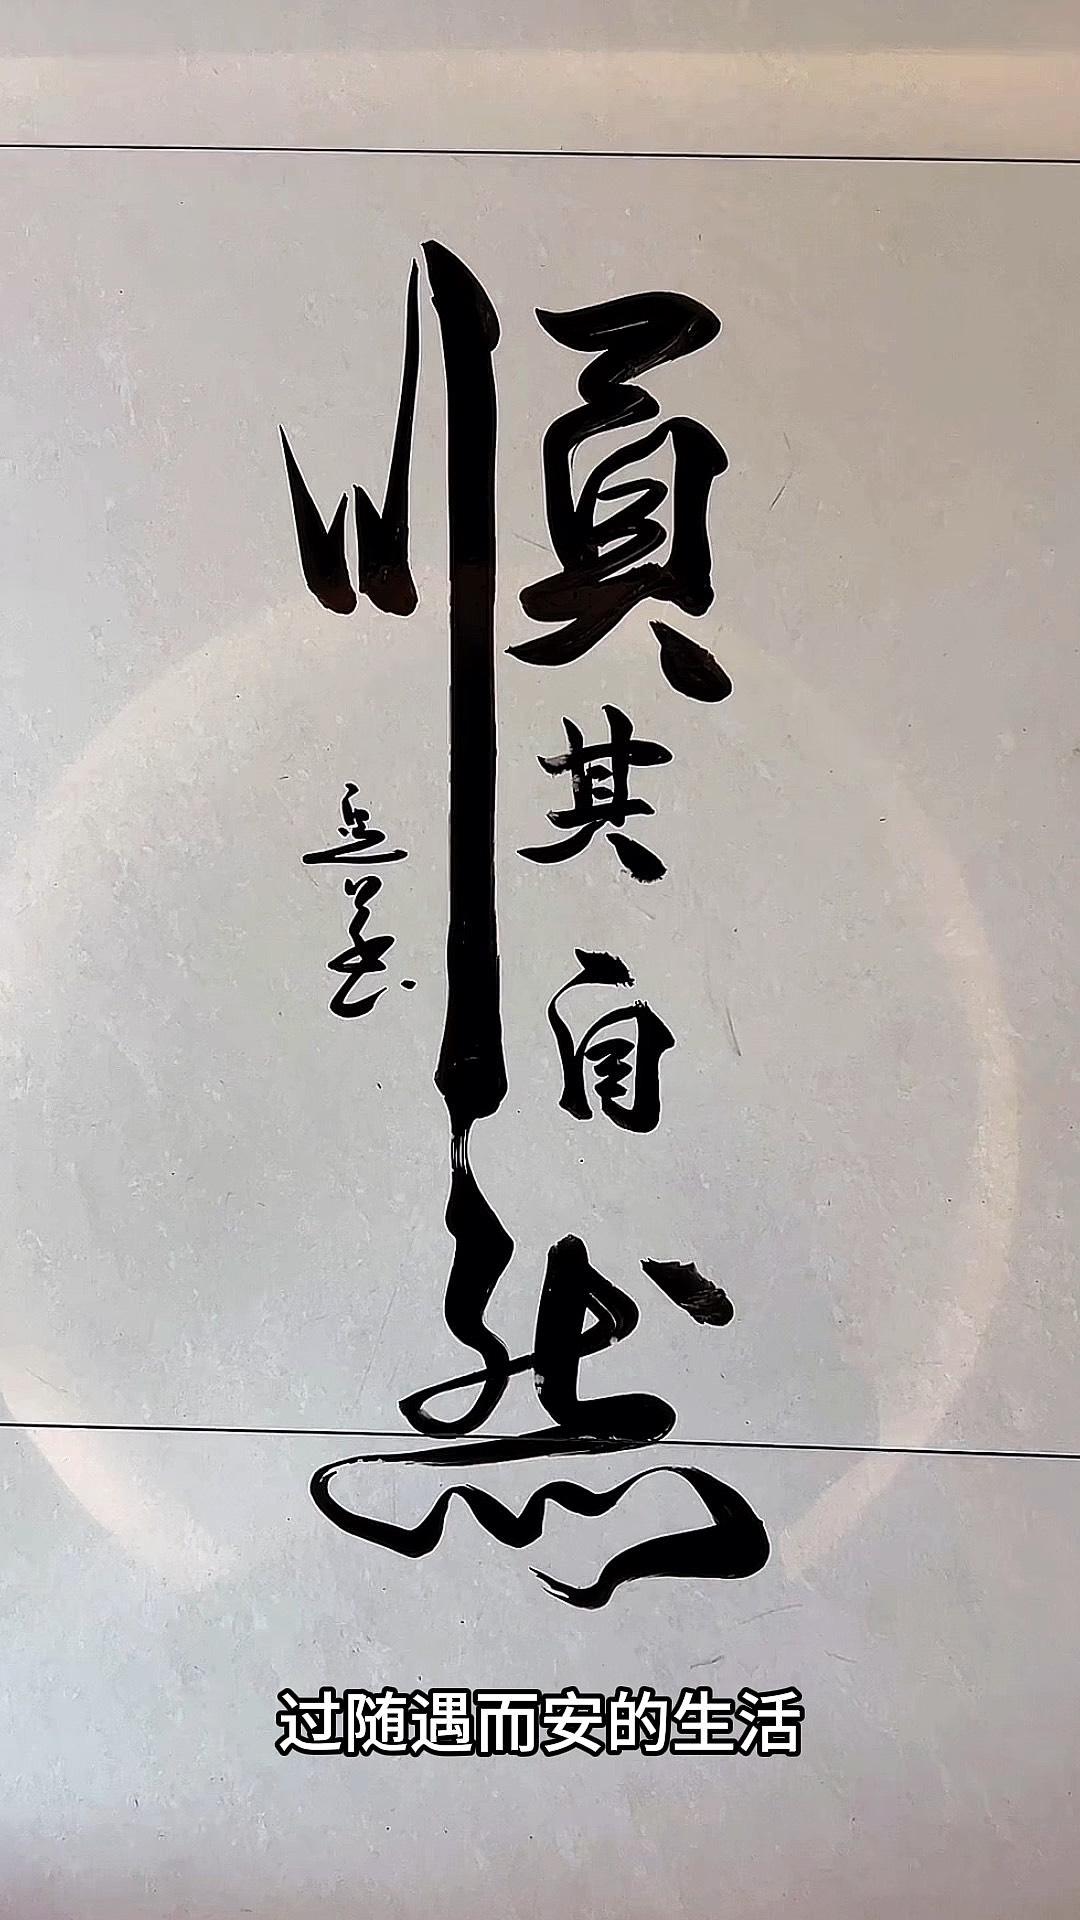 順其自然
过随遇而安的生活